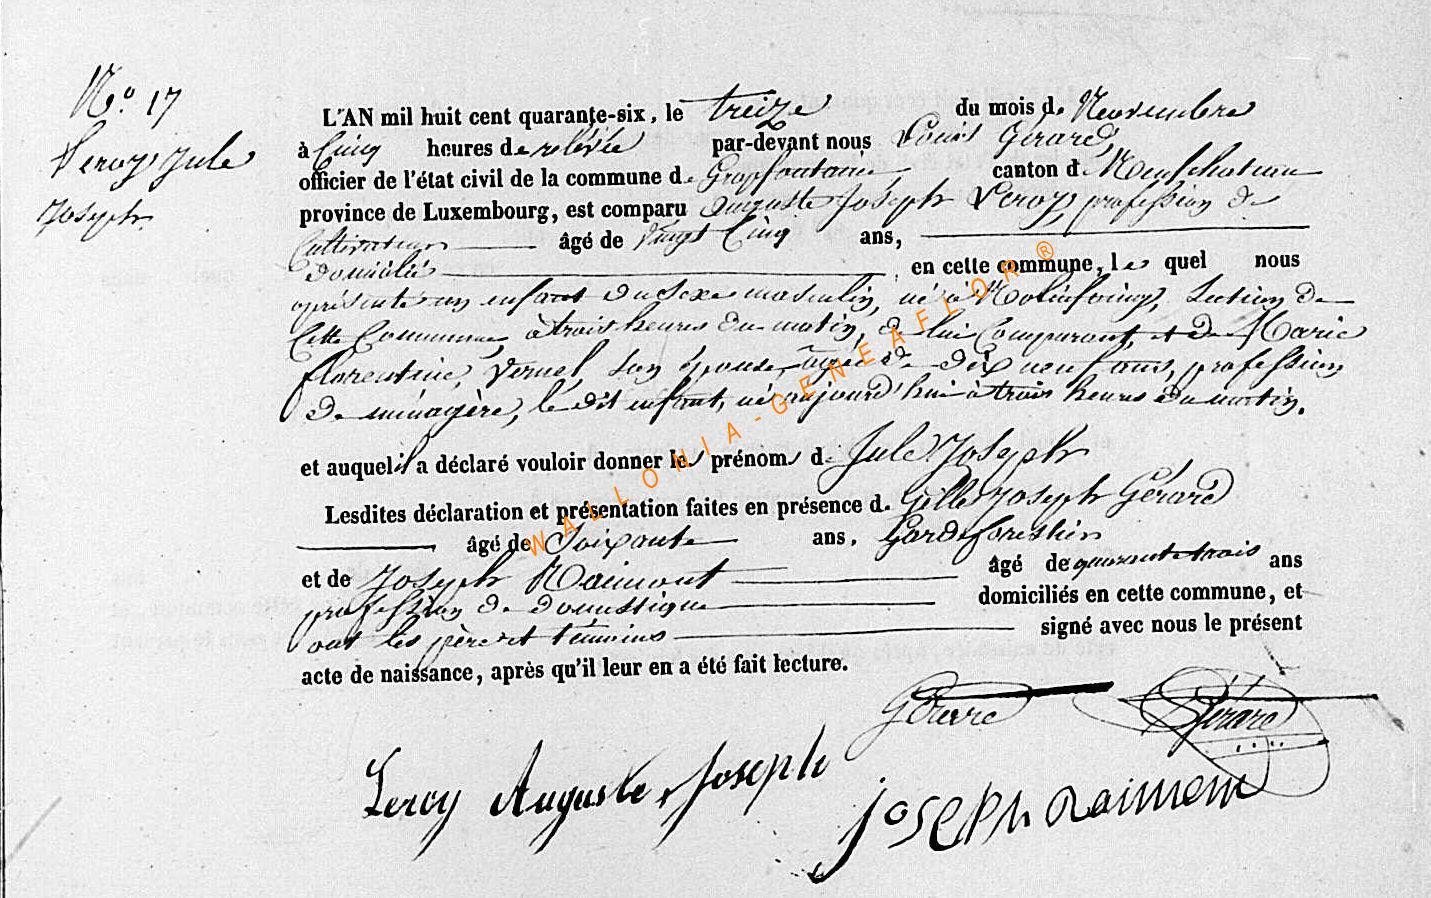 No 17
Leroy Jule
Joseph
L'AN mil huit cent quarante-six, le treize du mois de Novembre
à Cinq heures de relevée par-devant nous Louis Gérard,
officier de l'état civil de la commune de Grapfontaine canton de Neufchateau
province de Luxembourg, est comparu Auguste Joseph Leroy, profession de
Cultivateur âgé de vingt Cinq ans,
domicilié en cette commune, le quel nous
présente un enfant du sexe masculin, né à Molinfaing, Section de
Cette Commune, à trois heures du matin, de lui Comparant, et de Marie
florentine, Vernel, son épouse, agée de dix neuf ans, profession
de ménagère, le dit enfant, né aujourd'hui à trois heures du matin.
et auquel il a déclaré vouloir donner les prénoms de Jule Joseph
Lesdites déclaration et présentation faites en présence de Gille Joseph Gérard
âgé de Soixante ans, Garde forestier
et de Joseph Raimont âgé de quarante trois ans
profession de domestique domiciliés en cette commune, et
ont les père et témoins signé avec nous le présent
acte de naissance, après qu'il leur en a été fait lecture.
Gérard
Gérard
Leroy Auguste Joseph
joseph Raimont
WALLONIA-GENEAFLOR®